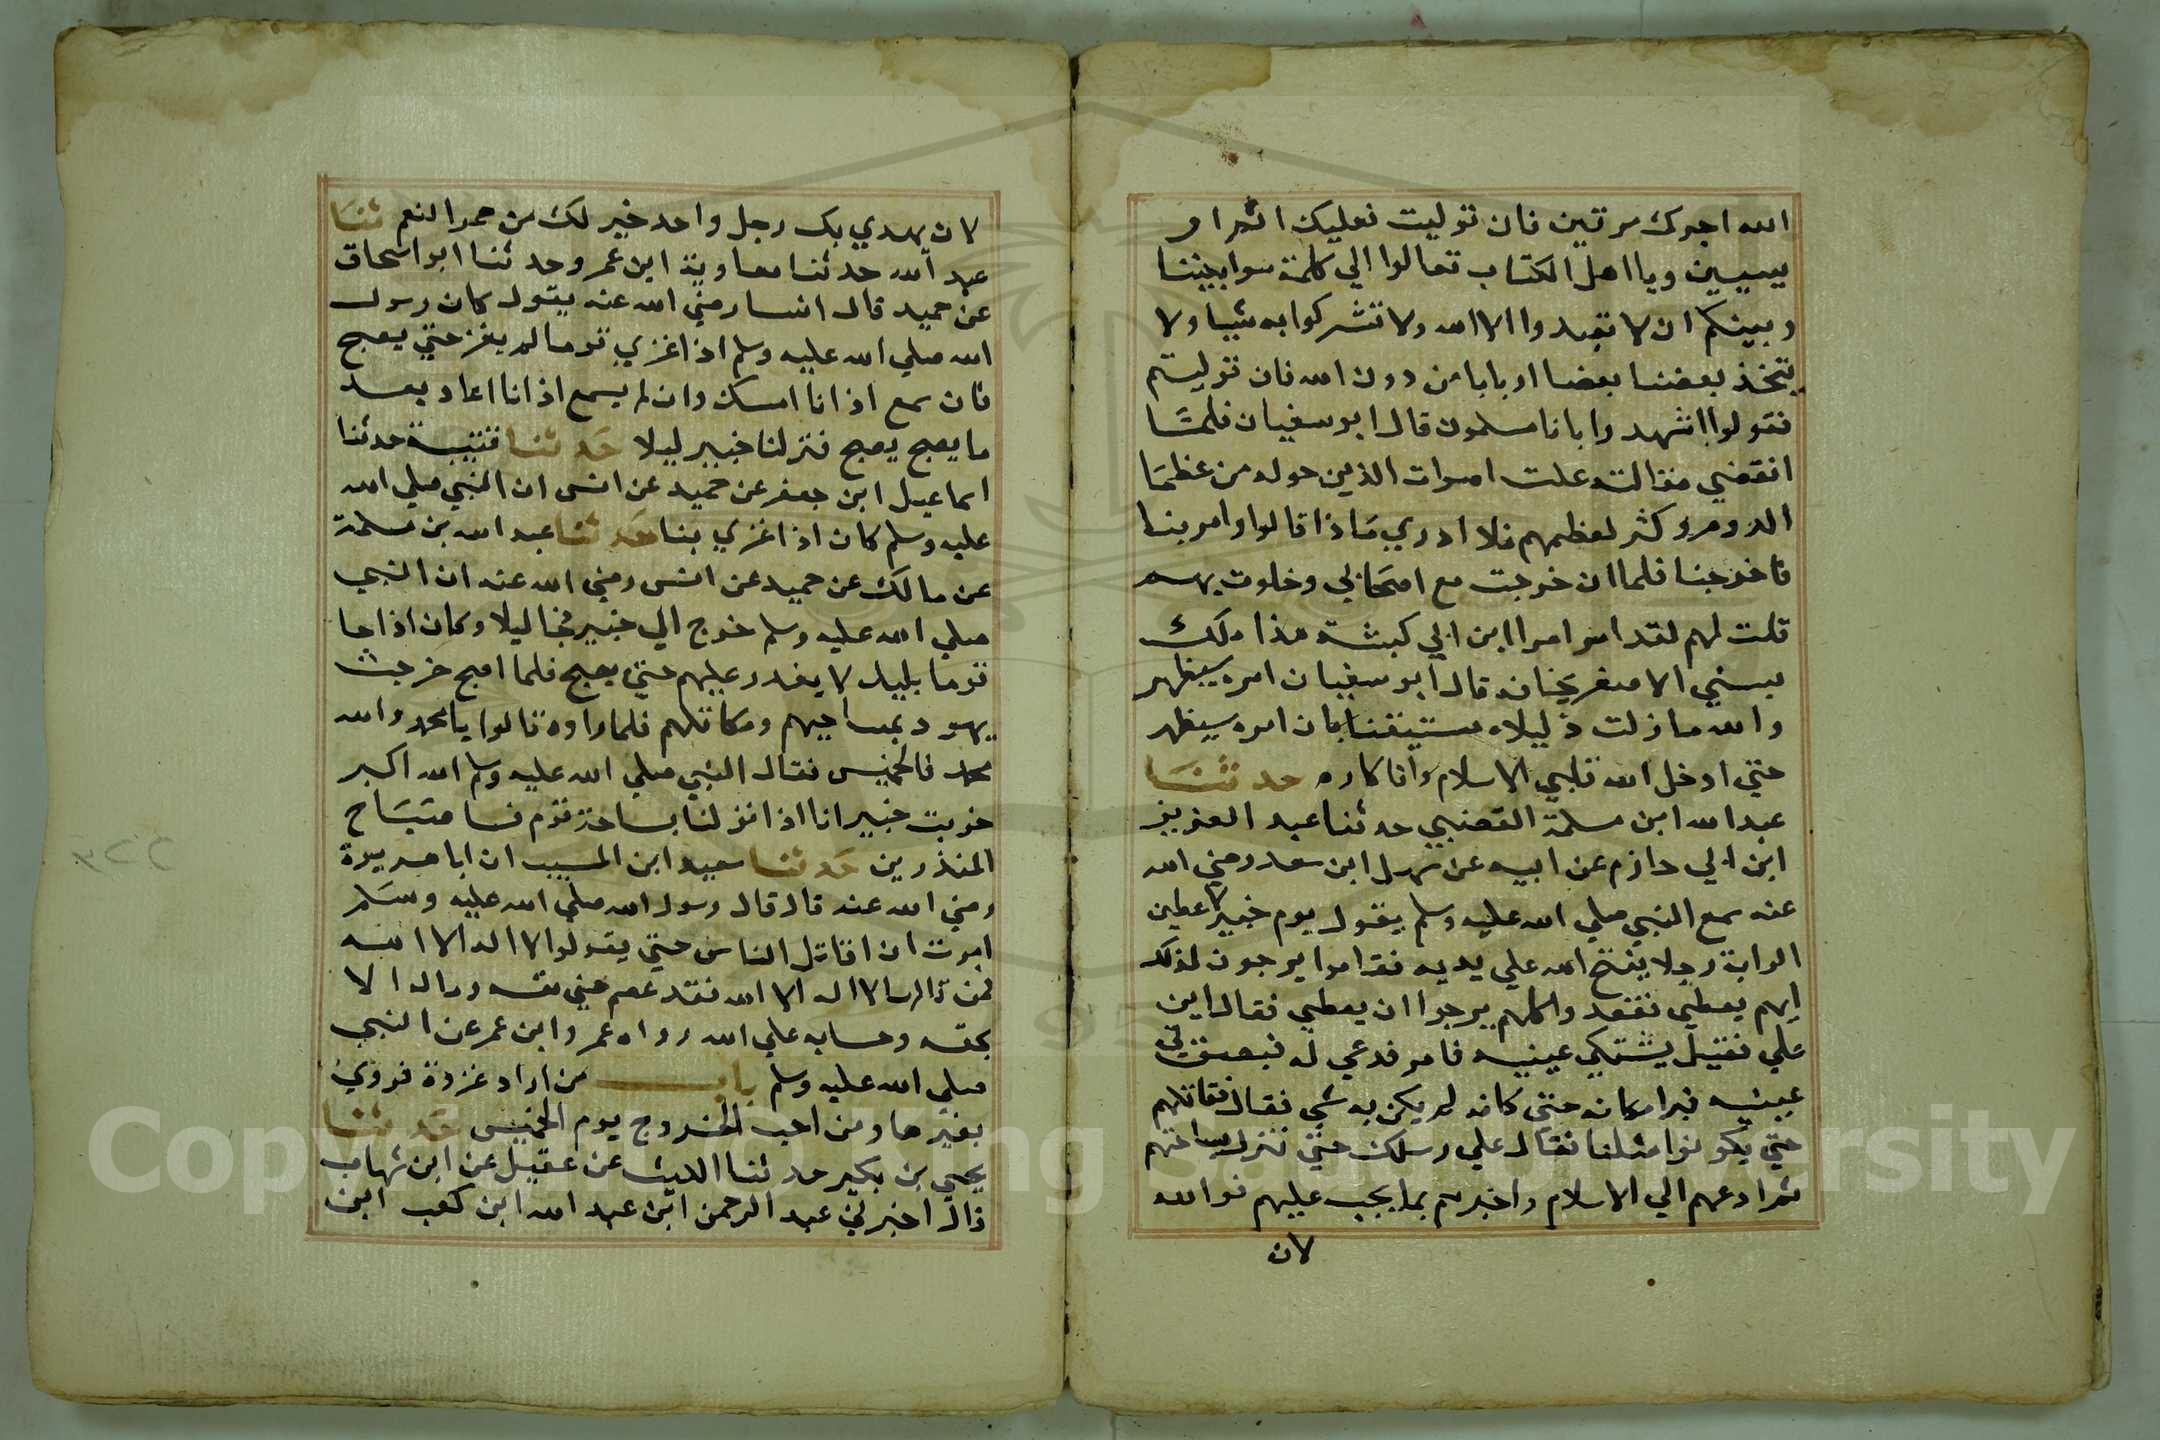 الله اجرك مرتين فان توليت فعليك اثم ام
يسيين ويا اهل الكتاب تعالوا الي كلمة سوا بيننا
وبينكم ان لا نعبدوا الا الله ولا نشركوا به شيا ولا
يتخذ بعضنا بعضا اربابا من دون الله فان توليتم
فقولوا اشهدوا بانا مسلمون قال ابو سفيان فلمَّا
انقضي مقالته علت اصوات الذين حوله من عظمَا
الروم وكثر لغطهم فلا ادري مَاذا قالوا وامر بنا
فاخرجنا فلما ان خرجت مع اصحَابي وخلوت بهم
قلت لهم لقد امر امر ابن ابي كبشة هذا ملك
بني الاصفر يخافه قال ابو سفيان امره سيظهر
والله ما زلت ذليلا مستيقنا بان امره سيظهر
حتي ادخل الله قلبي الاسلام وانا كاره حدثنَا
عبد الله ابن مسلمة القعنبي حدثنا عبد العزيز
ابن ابي حازم عن ابيه عن سهل ابن سعد رضي الله
عنه سمع النبي صلي الله عليه وسلم يقول يوم خيبر لاعطين
الراية رجلا يفتح الله علي يديه فقاموا يرجون لذلك
ايهم يعطي فغدوا كلهم يرجوا ان يعطي فقال اين
علي فقيل يشتكي عينيه فامر فدعي له فبصق في
عينيه فبرا مكانه حتي كانه لم يكن به شي فقال نقاتلهم
حتي يكونوا مثلنا فقال علي رسلك حتي تنزل بساحتهم
ثم ادعهم الي الاسلام واخبرهم بما يجب عليهم فوالله
لان
لان يهدي بك رجل واحد خير لك من حمر النعم ثنَا
عبد الله حدثنا معاوية ابن عمر وحدثنا ابو اسحاق
عن حميد قال انسا رضي الله عنه يقول كان رسول
الله صلي الله عليه وسلم اذا غزي قوما لم يغز حتي يصبح
فان سمع اذانا امسك وان لم يسمع اذانا اغار بعد
ما يصبح يصبح فنزلنا خيبر ليلا حَدثنا قتيبة حدثنا
اسماعيل ابن جعفر عن حميد عن انس ان النبي صلي الله
عليه وسلم كان اذا غزي بنا حَدثنا عبد الله بن مسلمة
عن مالك عن حميد عن انس رضي الله عنه ان النبي
صلي الله عليه وسلم خرج الي خيبر فجا ليلا وكان اذا جا
قوما بليل لا يغدر عليهم حتي يصبح فلما اصبح خرجت
يهود بمساحيهم ومكاتلهم فلما راوه قالوا يا محمد والله
محمد فالخميس فقال النبي صلي الله عليه وسلم الله اكبر
خربت خيبر انا اذا نزلنا بساحة قوم فسا صَبَاح
المنذرين حَدثنا سعيد ابن المسيب ان ابا هريرة
رضي الله عنه قال قال رسول الله صلي الله عليه وسَلم
امرت ان اقاتل الناس حتي يقولوا لا اله الا الله
فمن قال لا اله الا الله فقد عصم مني نفسه وماله الا
بحقه وحسابه علي الله رواه عمر وابن عمر عن النبي
صلي الله عليه وسلم باب من اراد غزوة فروي
بغيرها ومن احب الخروج يوم الخميس حَدثنا
يحيي بن بكير حدثنا الليث عن عقيل عن ابن شهاب
قال اخبرني عبد الرحمن ابن عبد الله ابن كعب ابن
٢٢٣
Copyright © King Saud University